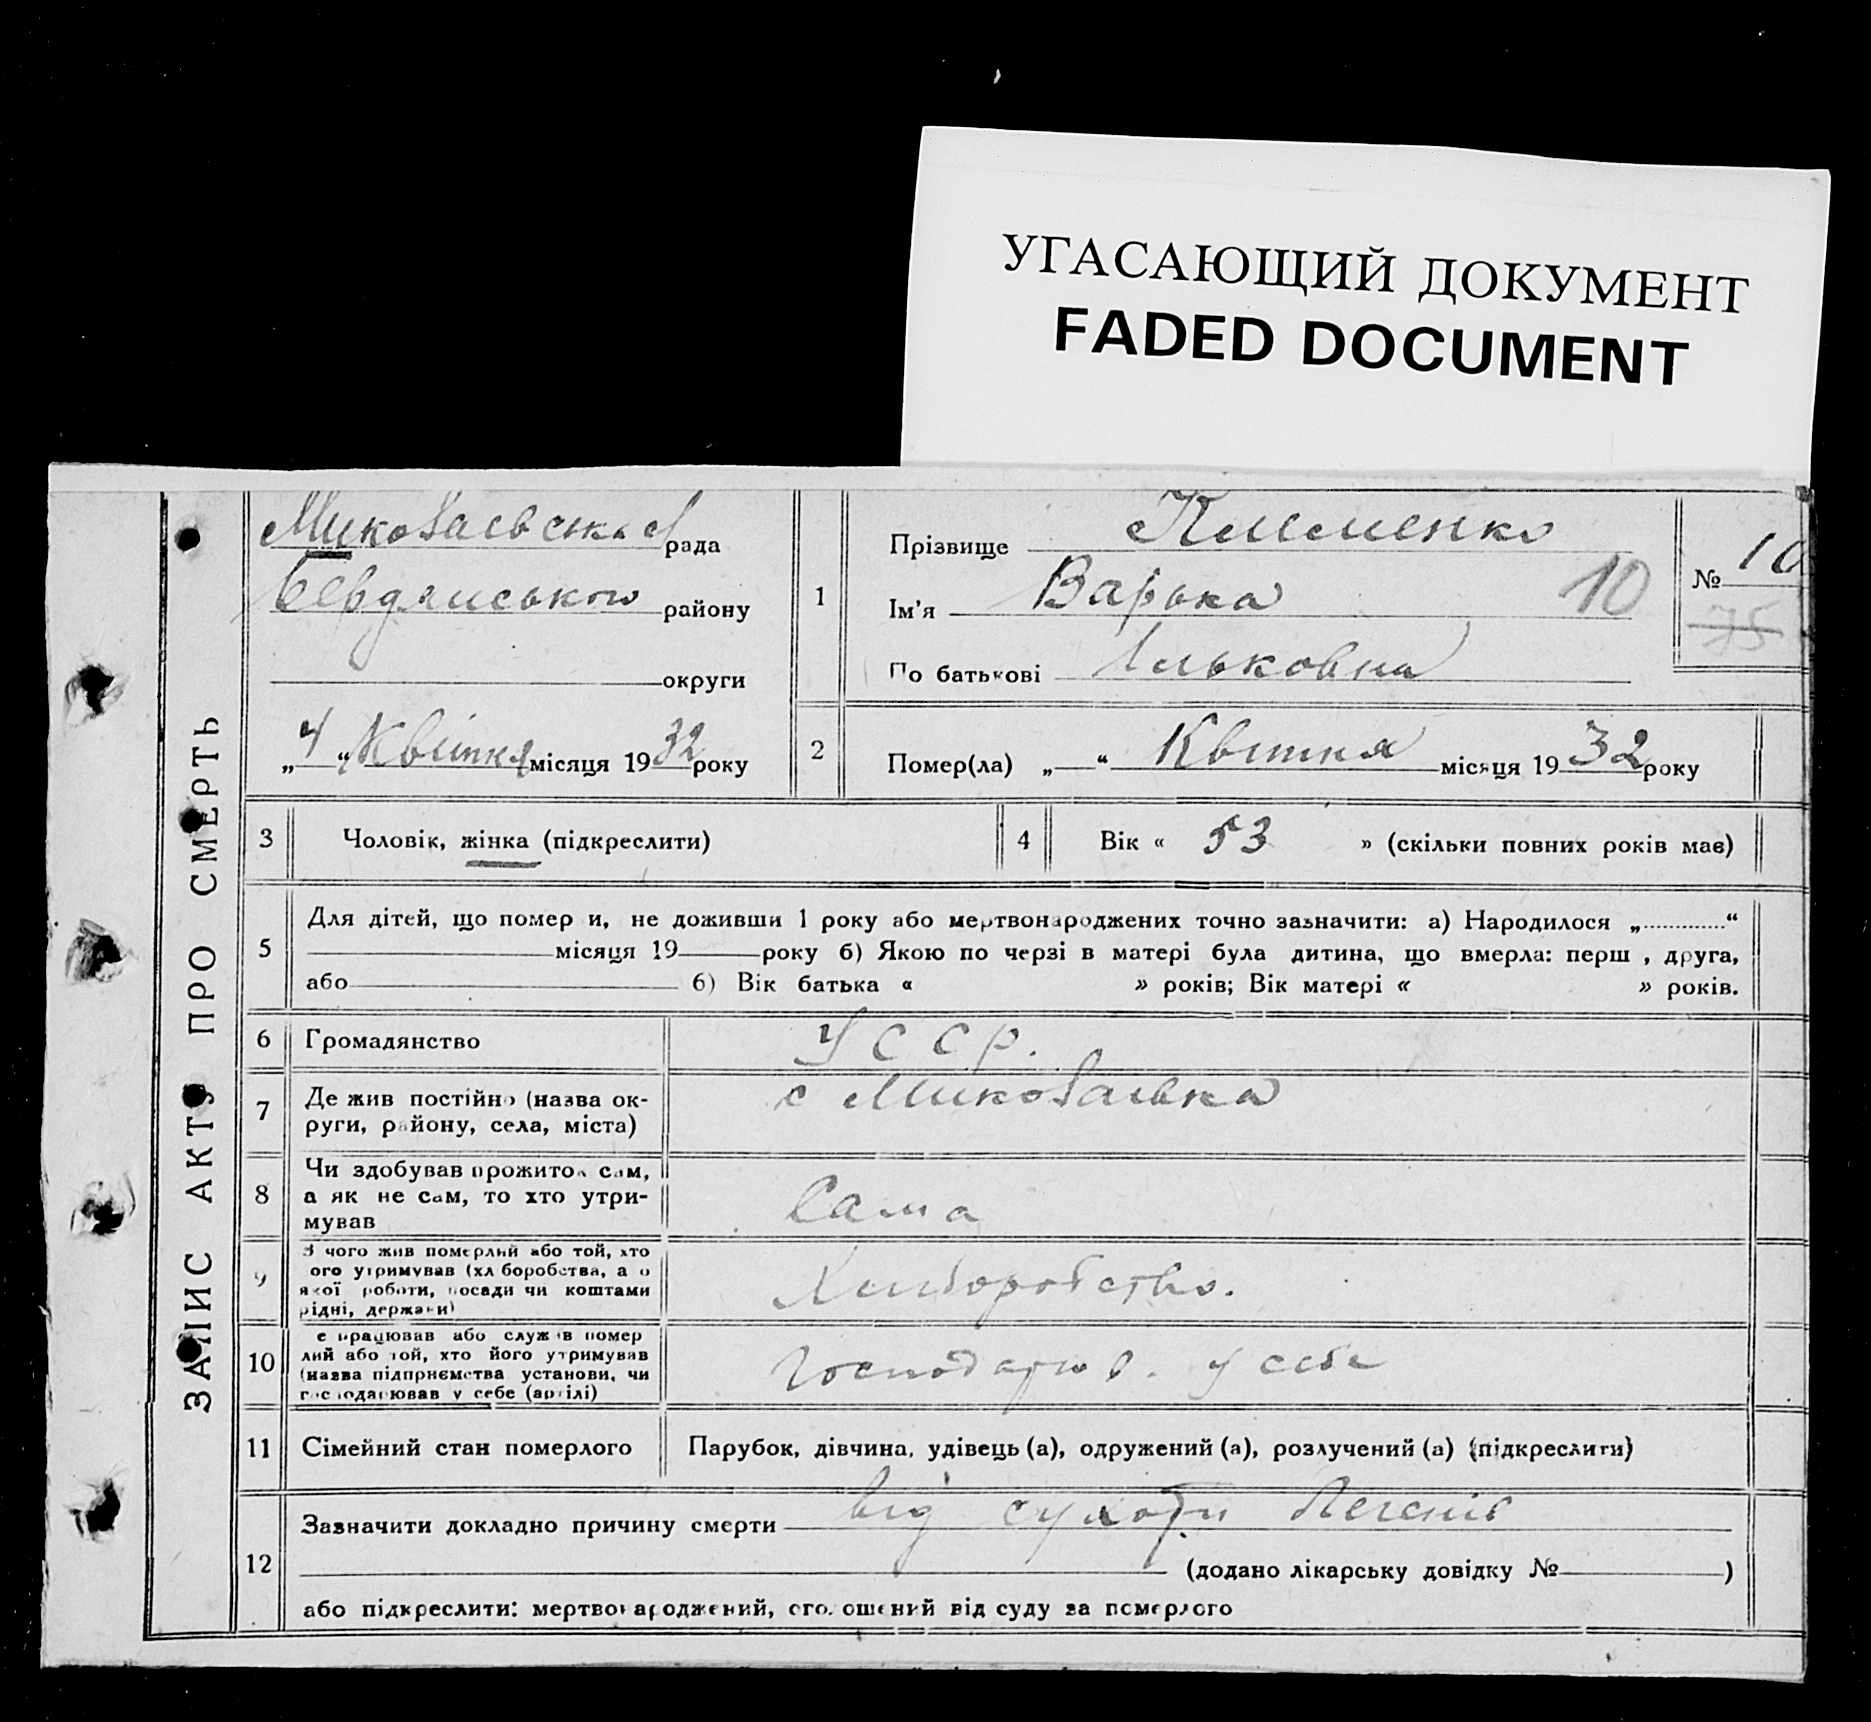 УГАСАЮЩИЙ ДОКУМЕНТ
FADED DOCUMENT
ЗАПИС АКТУ ПРО СМЕРТЬ
Миколаевська рада
Бердянського району
округи
„ 4 “ Квітня місяця 19 32 року
1
Прізвище Клименко
Ім'я Варька 10
По батькові Ільковна
№ 10
75
2
Помер(ла) „ “ Квітня місяця 19 32 року
3 Чоловік, жінка (підкреслити)
4 Вік « 53 » (скільки повних років має)
5 Для дітей, що помер и, не доживши 1 року або мертвонароджених точно зазначити: а) Народилося „ “
місяця 19 року б) Якою по черзі в матері була дитина, що вмерла: перш , друга,
або 6) Вік батька « » років; Вік матері « » років.
6 Громадянство УССР.
7 Де жив постійно (назва ок-
руги, району, села, міста)
с Миколаівка
8 Чи здобував прожиток сам,
а як не сам, то хто утри-
мував
Сама
9 З чого жив померлий або той, хто
ого утримував (хл боробства, а о
якої роботи, посади чи коштами
рідні, держави)
Хлиборобство.
10 е працював або служ в помер
лий або той, хто його утримував
(назва підприємства установи, чи
господарював у себе (артілі)
Господарюв. у себе
11 Сімейний стан померлого Парубок, дівчина, удівець (а), одружений (а), розлучений (а) (підкреслити)
12 Зазначити докладно причину смерти від сухоти легенів
(додано лікарську довідку № )
або підкреслити: мертвонароджений, оголошений від суду за померлого